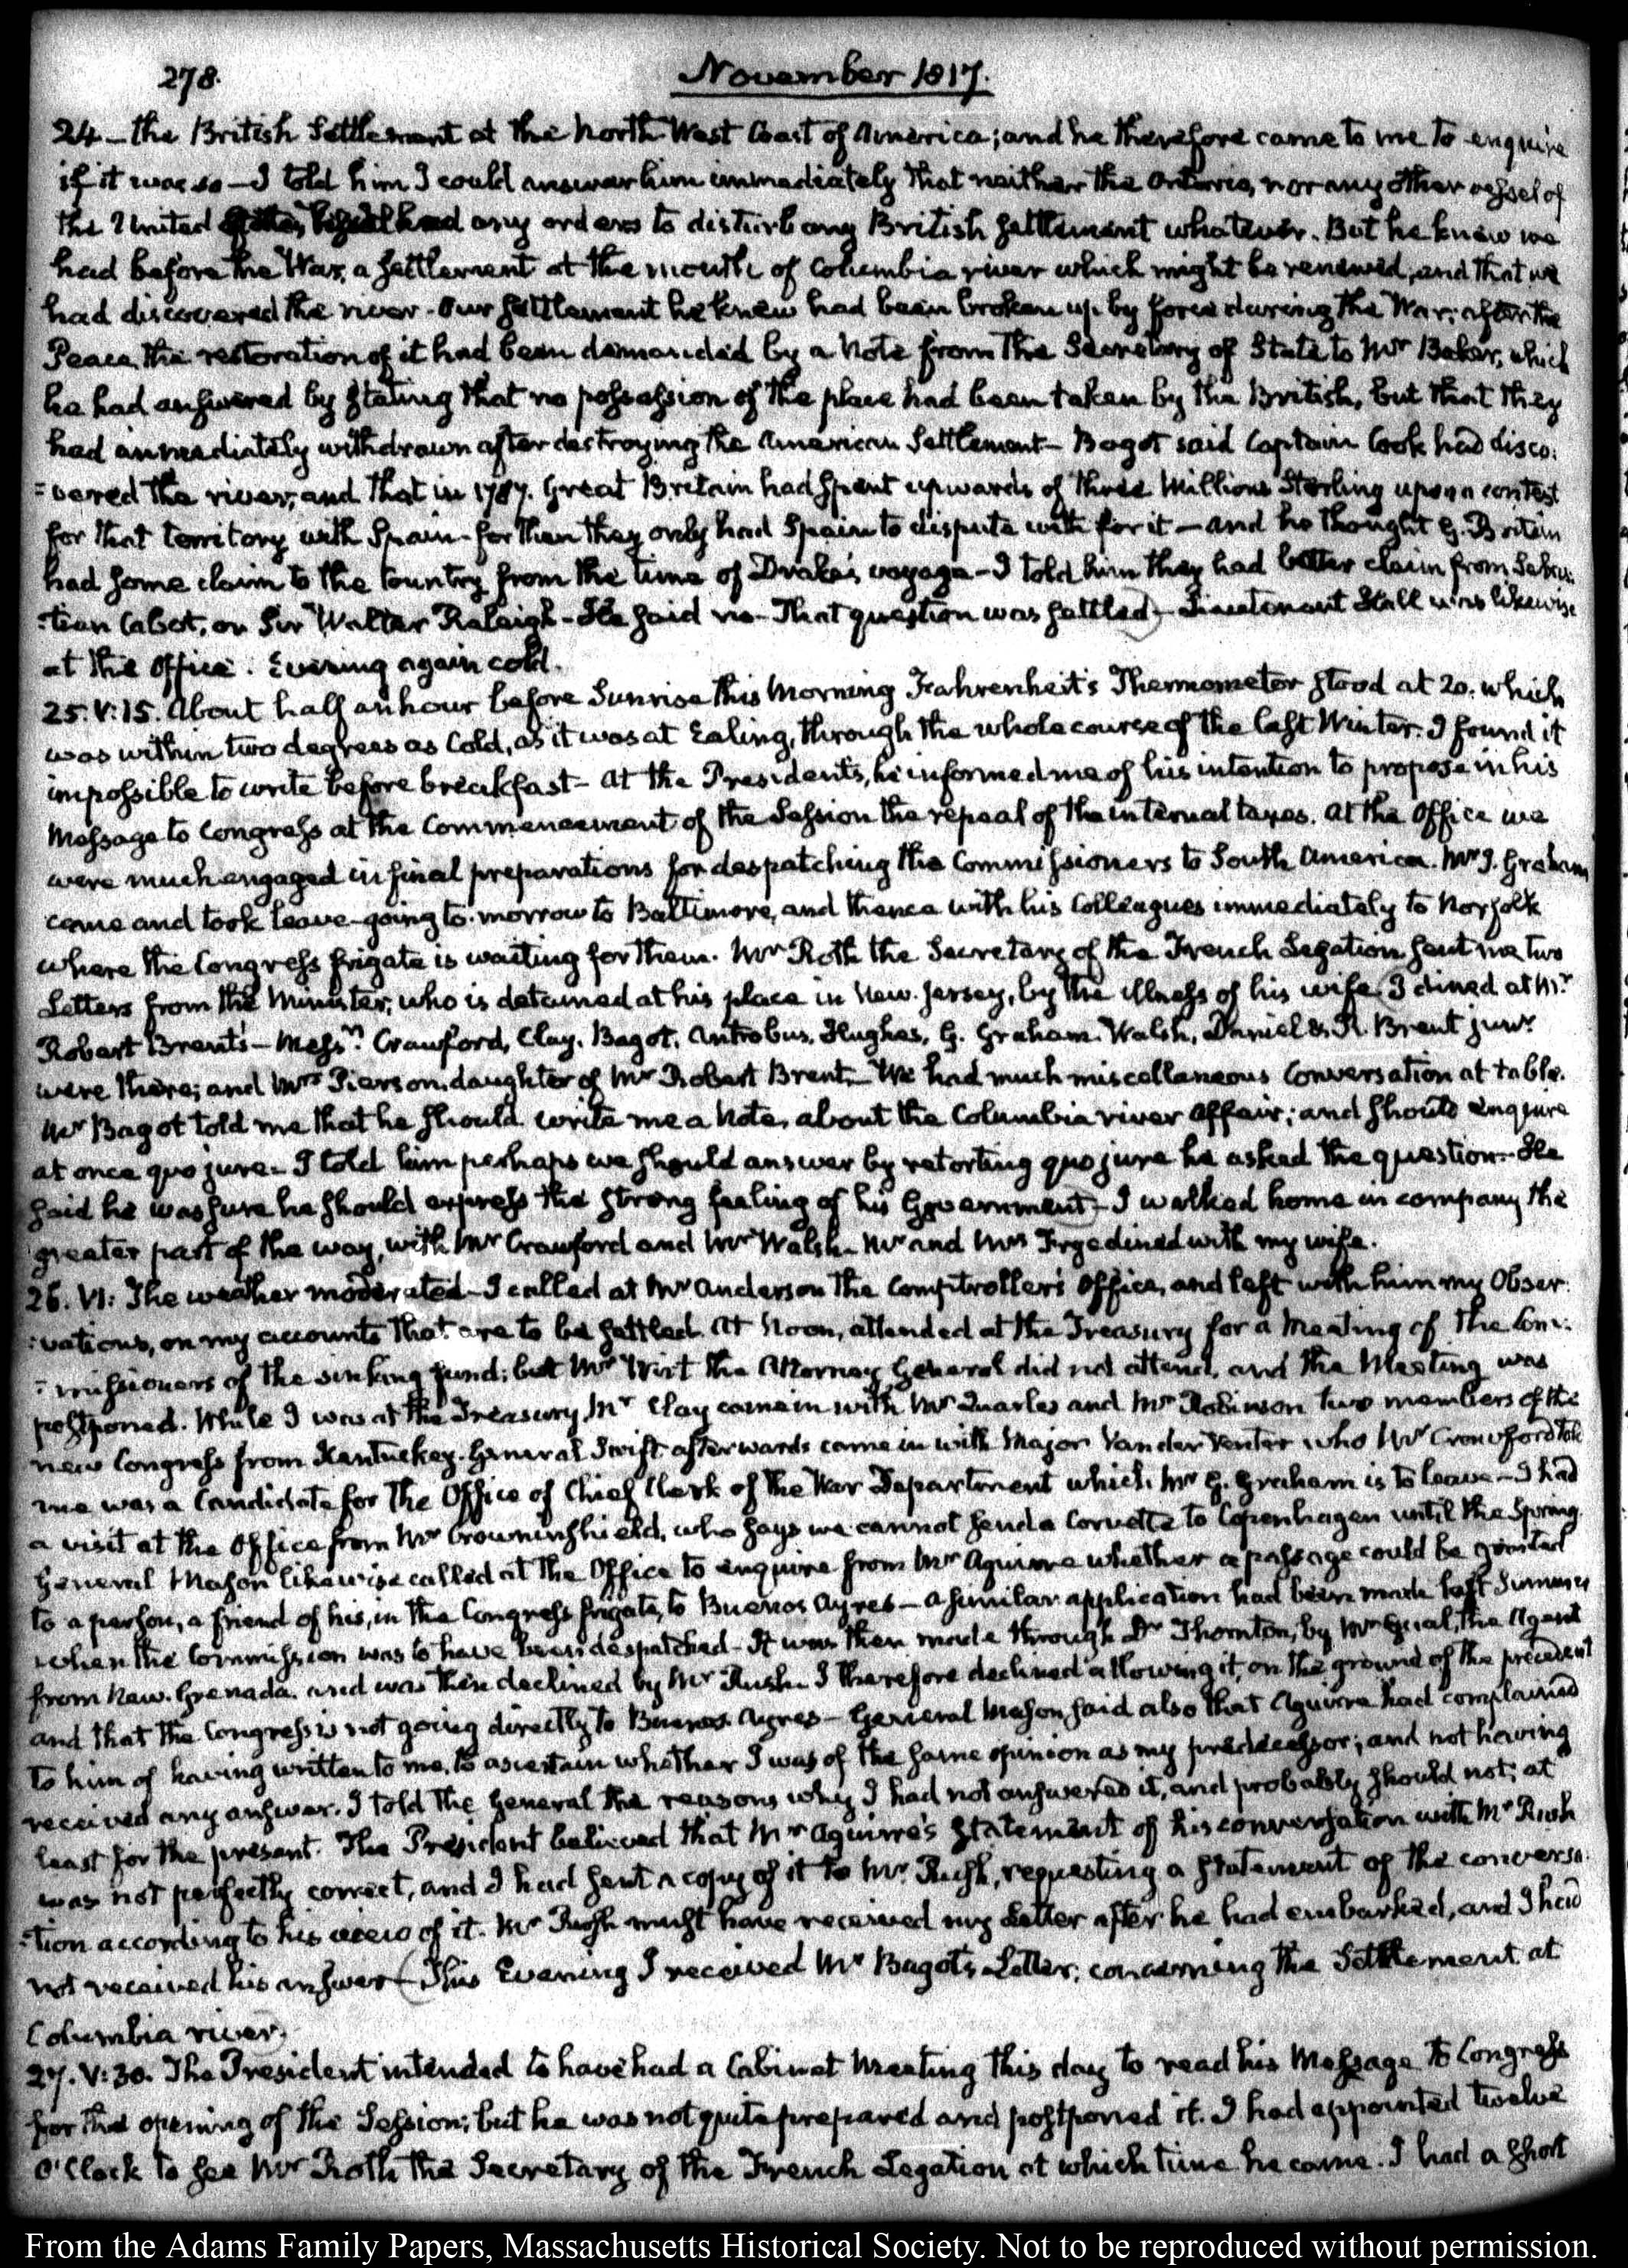 278.
November 1817.
24 - the British Settlement at the North West Coast of America; and he therefore came to me to enquire
if it was so - I told him I could answer him immediately that neither the Ontario, nor any other vessel of
the United States had any orders to disturb any British settlement whatever. But he knew we
had before the War, a settlement at the mouth of Columbia river which might be renewed, and that we
had discovered the river - Our settlement he knew had been broken up by force during the War; after the
Peace, the restoration of it had been demanded by a Note from the Secretary of State to Mr Baker, which
he had answered by stating that no possession of the place had been taken by the British, but that they
had immediately withdrawn after destroying the American Settlement - Bagot said Captain Cook had disco:
:vered the river, and that in 1787. Great Britain had spent upwards of three Millions Sterling upon a contest
for that territory with Spain - for then they only had Spain to dispute with for it - and he thought G. Britain
had some claim to the Country from the time of Drake's voyage - I told him they had better claim from Sebas:
:tian Cabot, or Sir Walter Raleigh - He said no - That question was settled) - Lieutenant Hall was likewise
at the Office. Evening again cold.
25. V:15. About half an hour before Sunrise this Morning Fahrenheit's Thermometer stood at 20. which
was within two degrees as Cold, as it was at Ealing, through the whole course of the last Winter. I found it
impossible to write before breakfast - At the President's, he informed me of his intention to propose in his
Message to Congress at the Commencement of the Session the repeal of the internal taxes. At the Office we
were much engaged in final preparations for despatching the Commissioners to South America. Mr J. Graham
came and took leave - going to-morrow to Baltimore, and thence with his Colleagues immediately to Norfolk
where the Congress frigate is waiting for them. Mr Roth the Secretary of the French Legation sent me two
Letters from the Minister, who is detained at his place in New-Jersey, by the illness of his wife. I dined at Mr
Robert Brent's - Messrs Crawford, Clay, Bagot, Antrobus, Hughes, G. Graham, Walsh, Daniel & R. Brent junr
were there; and Mrs Pierson, daughter of Mr Robert Brent. We had much miscellaneous Conversation at table.
Mr Bagot told me that he should write me a Note, about the Columbia river affair; and should enquire
at once quo jure - I told him perhaps we should answer by retorting quo jure he asked the question - He
said he was sure he should express the strong feeling of his Government) - I walked home in company the
greater part of the way, with Mr Crawford and Mr Walsh - Mr and Mrs Frye dined with my wife.
26. VI: The weather moderated - I called at Mr Anderson the Comptroller's Office, and left with him my Obser:
:vations, on my accounts that are to be settled. At Noon, attended at the Treasury for a Meeting of the Com:
:missioners of the sinking fund; but Mr Wirt the Attorney General did not attend, and the Meeting was
postponed. While I was at the Treasury, Mr Clay came in with Mr Quarles and Mr Robinson two members of the
new Congress from Kentuckey. General Swift afterwards came in with Major Vander Venter who Mr Crawford told
me was a Candidate for the Office of Chief Clerk of the War Department which Mr G. Graham is to leave - I had
a visit at the Office from Mr Crowninshield, who says we cannot send a Corvette to Copenhagen until the Spring.
General Mason likewise called at the Office to enquire from Mr Aguirre whether a passage could be granted
to a person, a friend of his, in the Congress frigate, to Buenos Ayres - A similar application had been made last Summer
when the Commission was to have been despatched - It was then made through Dr Thornton, by Mr Gual, the Agent
from New-Grenada. and was then declined by Mr Rush. I therefore declined allowing it, on the ground of the precedent
and that the Congress is not going directly to Buenos Ayres - General Mason said also that Aguirre had complained
to him of having written to me, to ascertain whether I was of the same opinion as my predecessor; and not having
received any answer. I told the General the reasons why I had not answered it, and probably should not; at
least for the present. The President believed that Mr Aguirre's statement of his conversation with Mr Rush
was not perfectly correct, and I had sent a copy of it to Mr Rush, requesting a statement of the conversa:
:tion according to his view of it. Mr Rush must have received my Letter after he had embarked, and I had
not received his answer - (This Evening I received Mr Bagot's Letter, concerning the Settlement at
Columbia river.)
27. V:30. The President intended to have had a Cabinet Meeting this day to read his Message to Congress
for the opening of the Session; but he was not quite prepared and postponed it. I had appointed twelve
O'Clock to see Mr Roth the Secretary of the French Legation at which time he came. I had a short
From the Adams Family Papers, Massachusetts Historical Society. Not to be reproduced without permission.